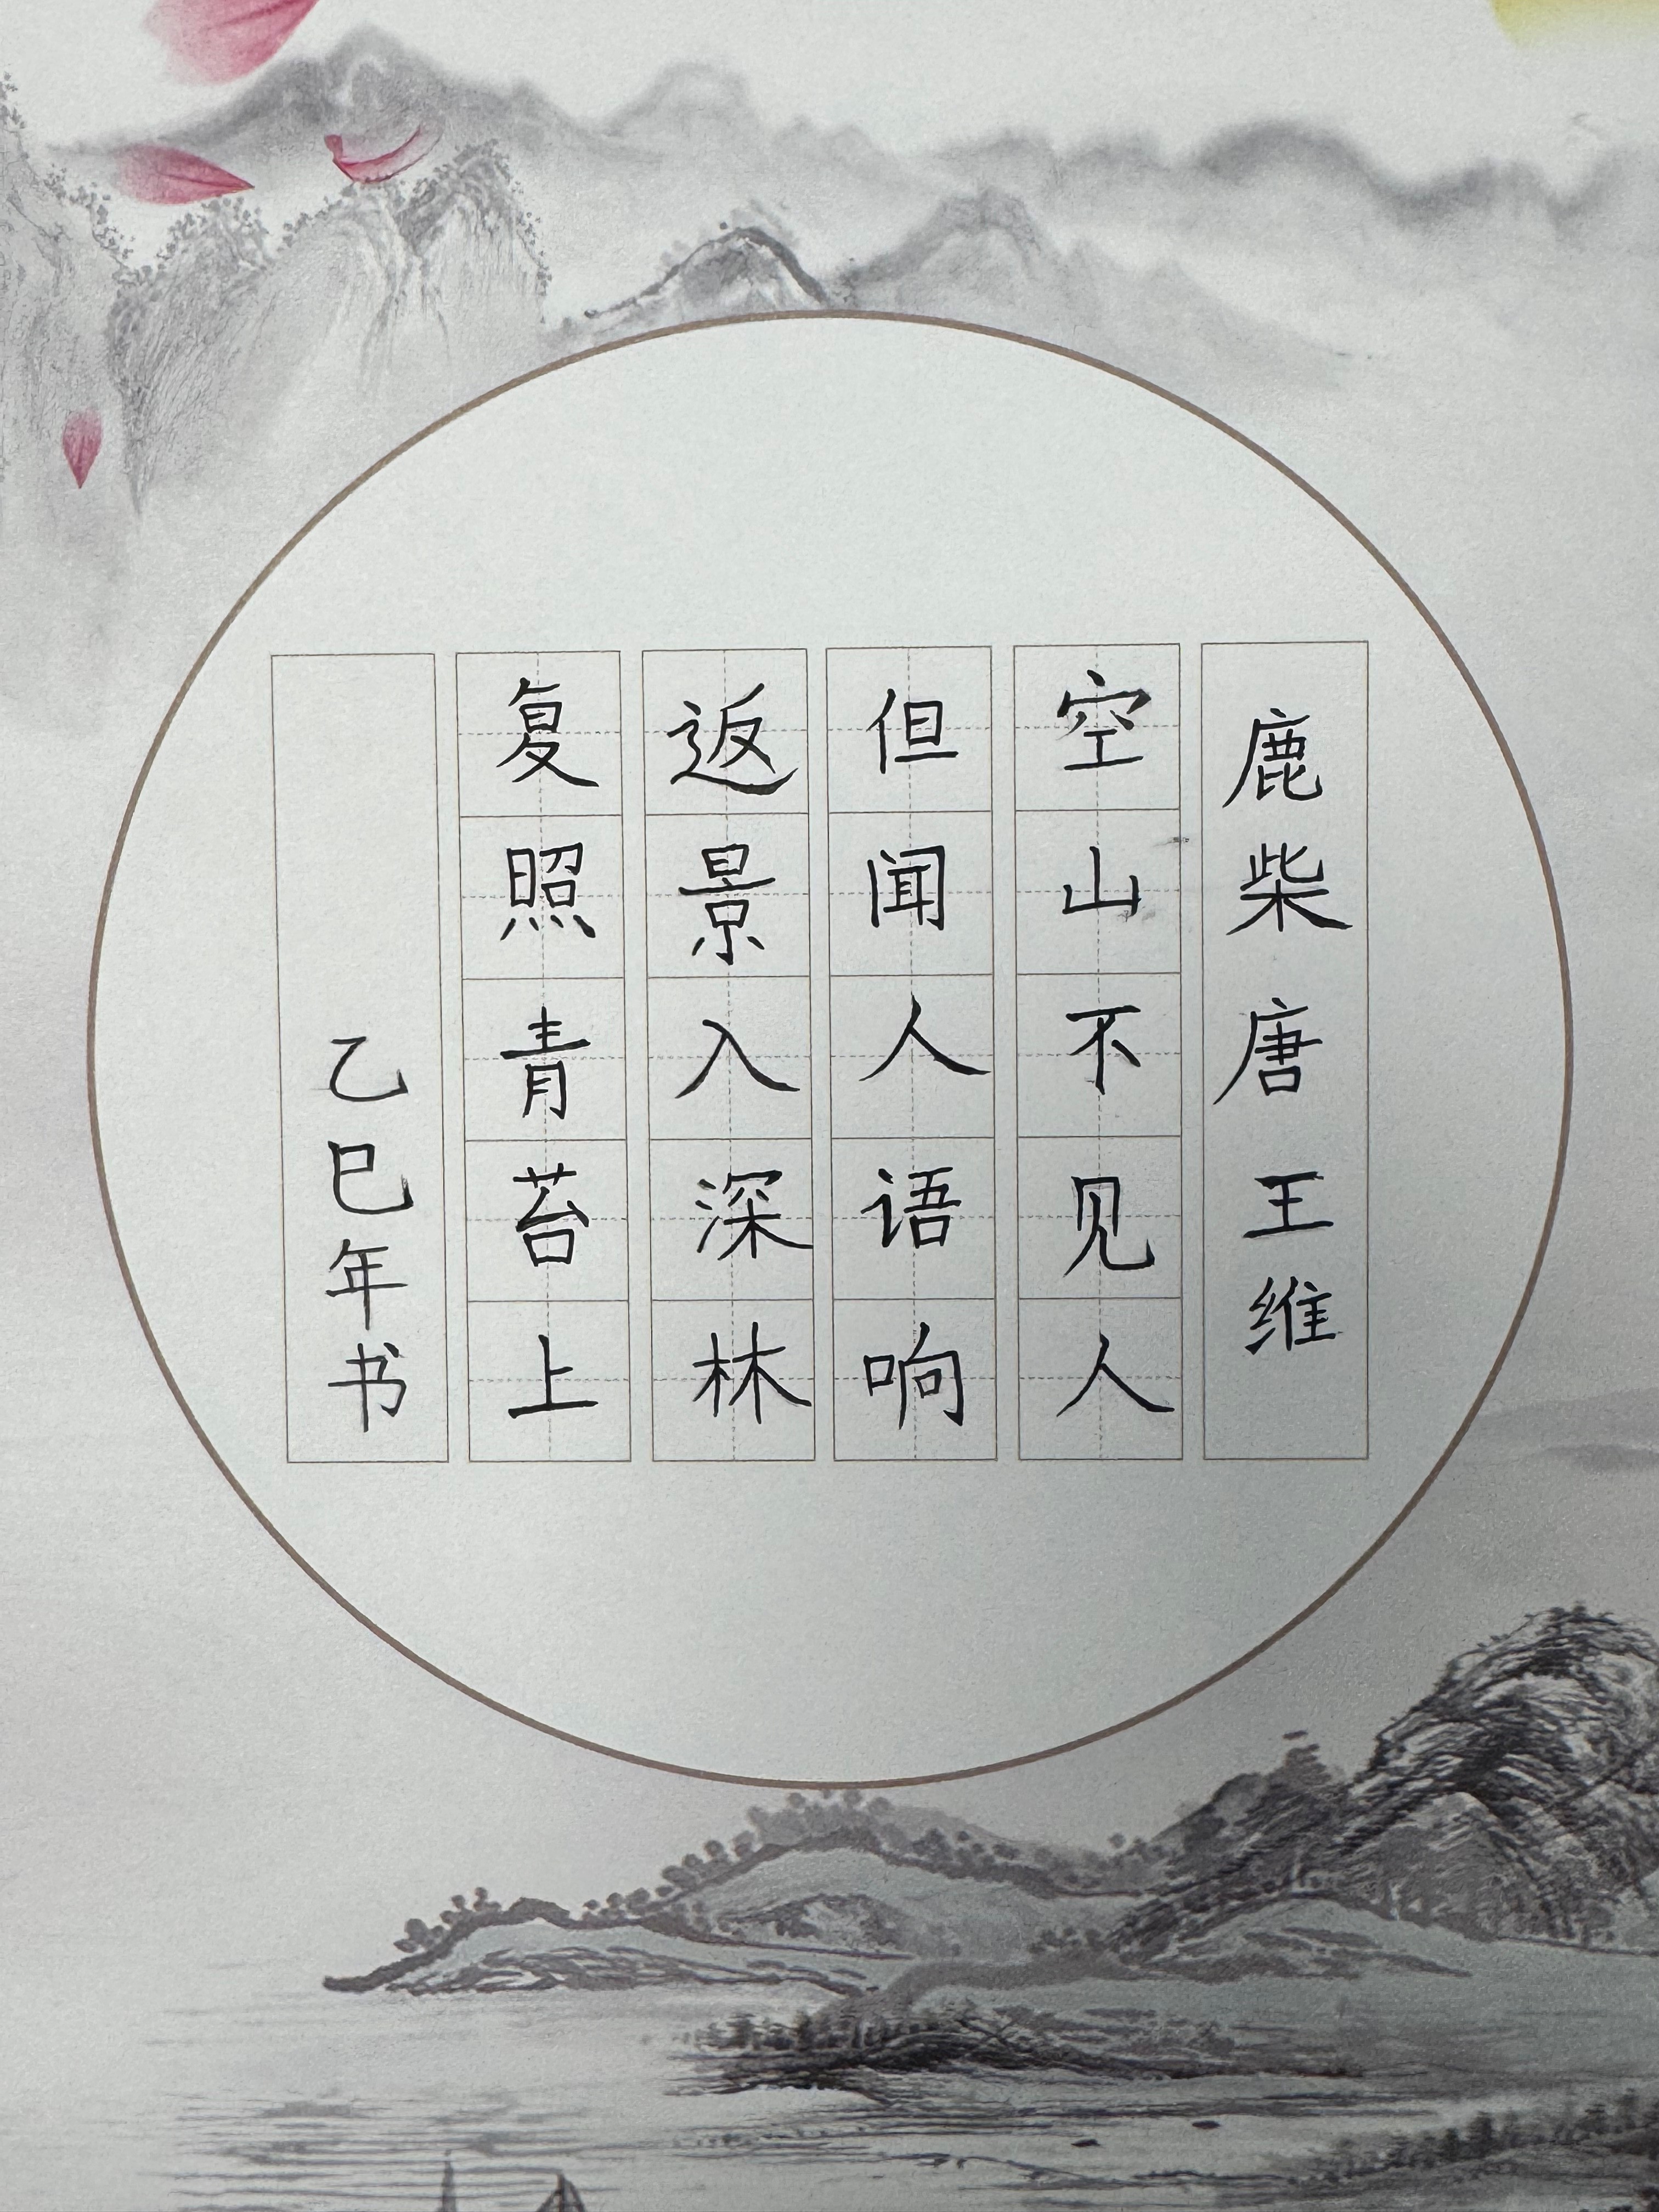 鹿柴 唐 王维
空山不见人
但闻人语响
返景入深林
复照青苔上
乙巳年书